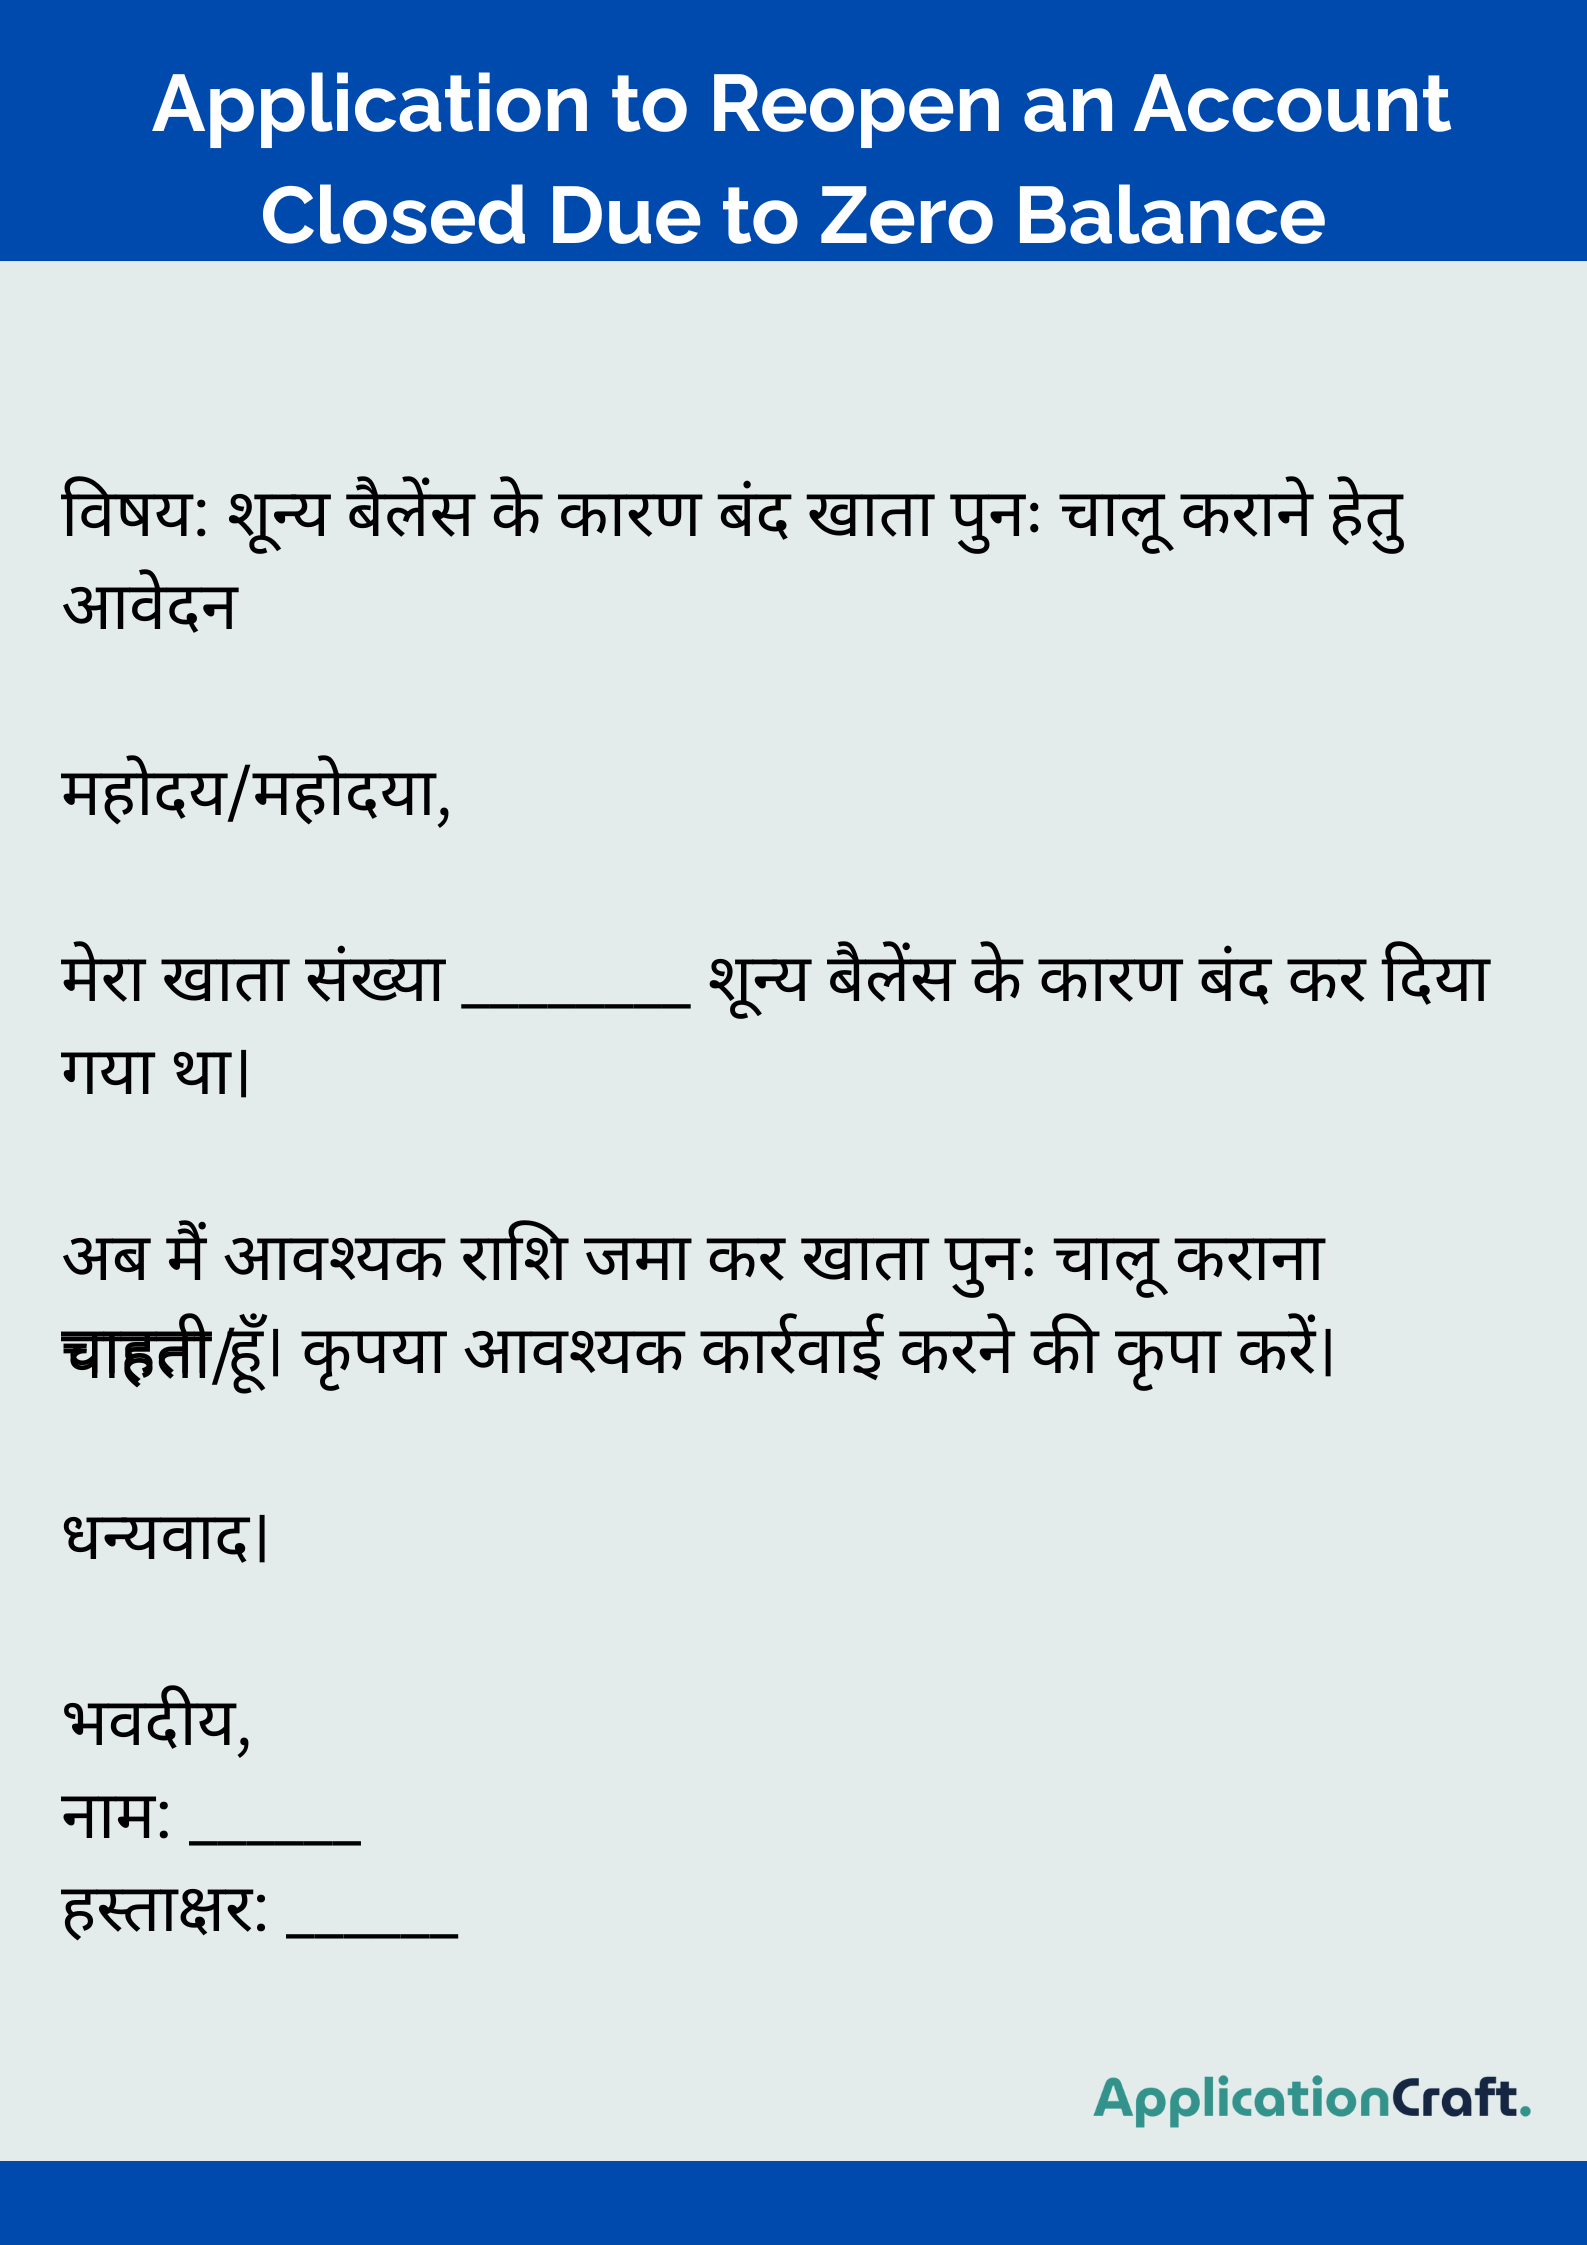 Application to Reopen an Account
Closed Due to Zero Balance
विषय: शून्य बैलेंस के कारण बंद खाता पुनः चालू कराने हेतु
आवेदन
महोदय/महोदया,
मेरा खाता संख्या ________ शून्य बैलेंस के कारण बंद कर दिया
गया था।
अब मैं आवश्यक राशि जमा कर खाता पुनः चालू कराना
चाहती/हूँ। कृपया आवश्यक कार्रवाई करने की कृपा करें।
धन्यवाद।
भवदीय,
नाम: ______
हस्ताक्षर: ______
ApplicationCraft.